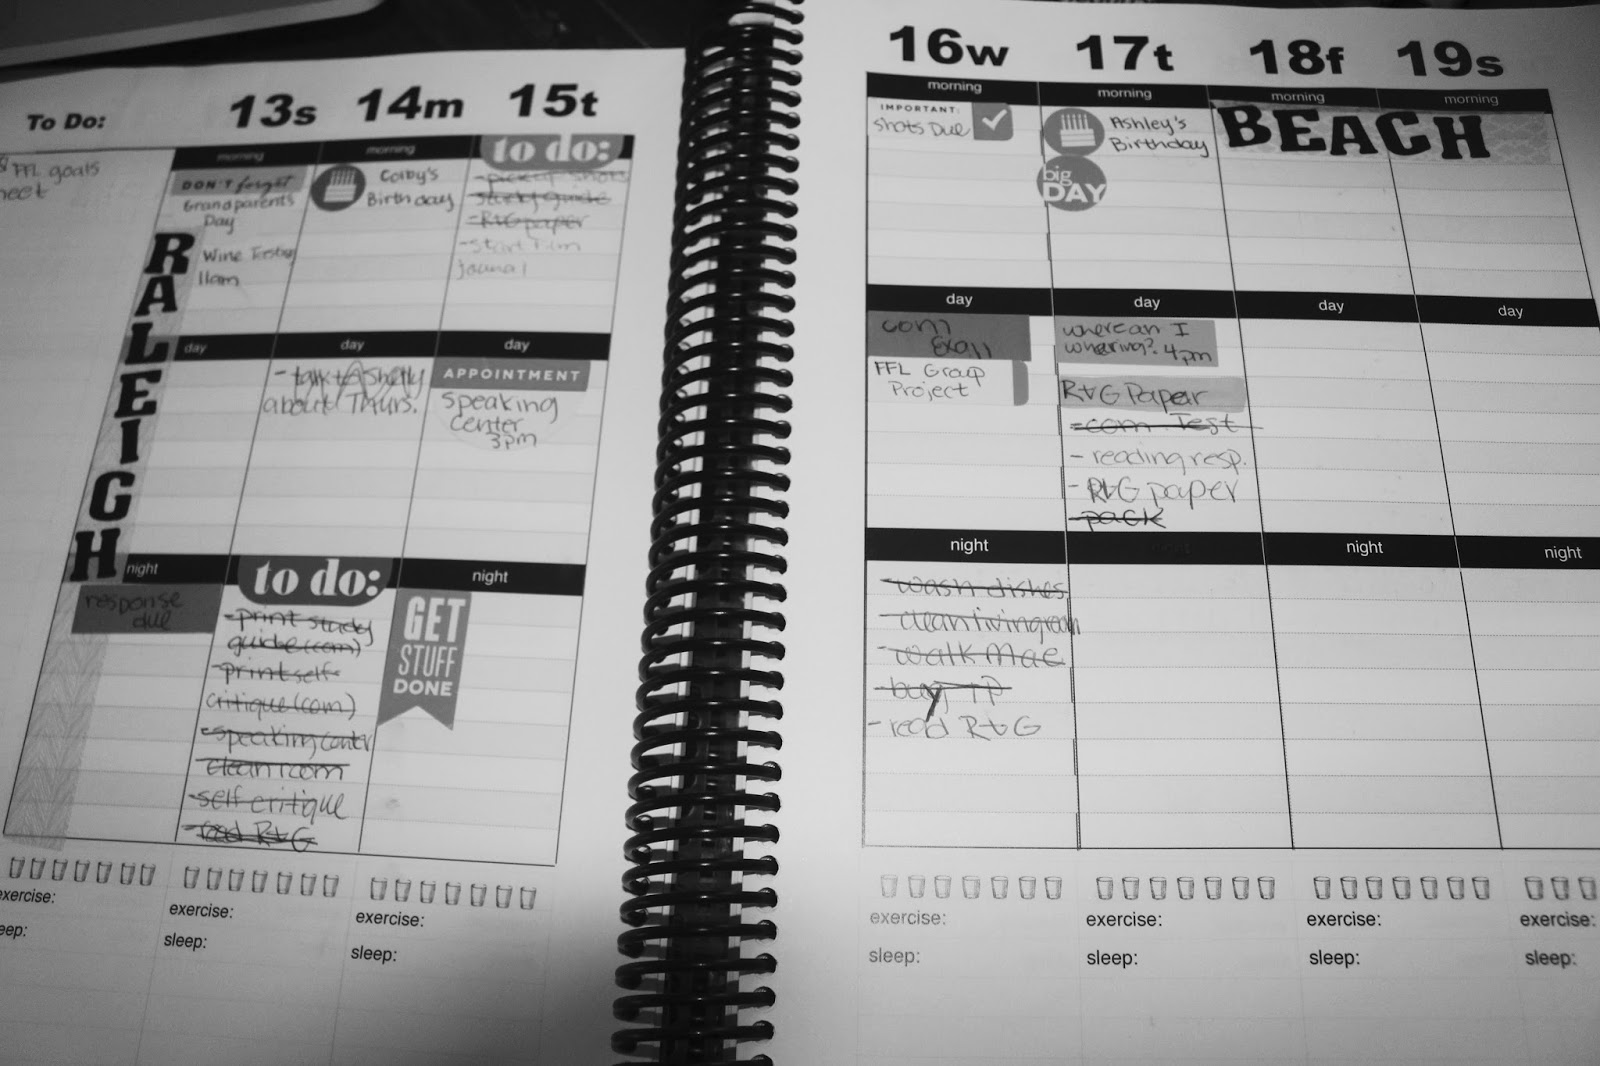 To Do:
FFL goals
13s
morning
DON'T forget
Grandparents
Day
Wine Tasting
11am
RALEIGH
day
night
response
due
14m
morning
Colby's
Birthday
day
- talk to Ashelly
about Thurs.
to do:
- print study
guide (com)
- print self-
critique (com)
- speaking center
clean room
- self critique
- read R+G
15t
to do:
- pick up shots
study guide
- R+G paper
- start film
journal
day
APPOINTMENT
Speaking
Center
3pm
night
GET
STUFF
DONE
exercise:
exercise:
sleep:
exercise:
sleep:
16w
morning
IMPORTANT:
Shots Due
day
com
FFL Group
Project
night
- wash dishes
- clean living room
- walk Mae
- buy TP
- read R+G
17t
morning
Ashley's
Birthday
big
DAY
day
where can I
whering? 4pm
R+G Paper
- com Test
- reading resp.
- R+G paper
- pack
night
18f
19s
morning
morning
BEACH
day
day
night
night
exercise:
sleep:
exercise:
sleep:
exercise:
sleep:
exercise:
sleep: